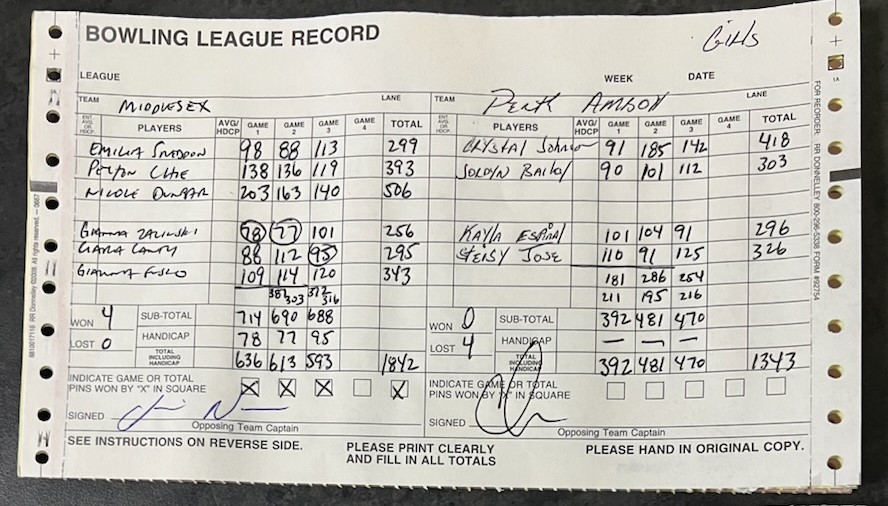 BOWLING LEAGUE RECORD
Girls
LEAGUE WEEK DATE
TEAM MIDDLESEX LANE TEAM Perth AMBOY LANE
ENT. AVG. OR HDCP. PLAYERS AVG/HDCP GAME 1 GAME 2 GAME 3 GAME 4 TOTAL ENT. AVG. OR HDCP. PLAYERS AVG/HDCP GAME 1 GAME 2 GAME 3 GAME 4 TOTAL
EMILIA 98 88 113 299 CRYSTAL Johnson 91 185 142 418
PEYTON 138 136 119 393 JORDYN Bailey 90 101 112 303
NICOLE DUNBAR 203 163 140 506
Gianna ZALEWSKI 78 77 101 256 KAYLA ESPINAL 101 104 91 296
CIARA CANTY 86 112 95 295 HEISY JOSE 110 91 125 326
GIANNA FUSCO 109 114 120 343 181 286 254
387 303 372 316 211 195 216
WON 4 SUB-TOTAL 714 690 688 WON 0 SUB-TOTAL 392 481 470
LOST 0 HANDICAP 78 77 95 LOST 4 HANDICAP — — —
TOTAL INCLUDING HANDICAP 636 613 593 1842 TOTAL INCLUDING HANDICAP 392 481 470 1343
INDICATE GAME OR TOTAL PINS WON BY "X" IN SQUARE X X X X INDICATE GAME OR TOTAL PINS WON BY "X" IN SQUARE
SIGNED SIGNED
Opposing Team Captain Opposing Team Captain
SEE INSTRUCTIONS ON REVERSE SIDE. PLEASE PRINT CLEARLY AND FILL IN ALL TOTALS PLEASE HAND IN ORIGINAL COPY.
FOR REORDER: RR DONNELLEY 800-296-5338 FORM #92754
6810017116 RR Donnelley ©2008. All rights reserved. — 0667